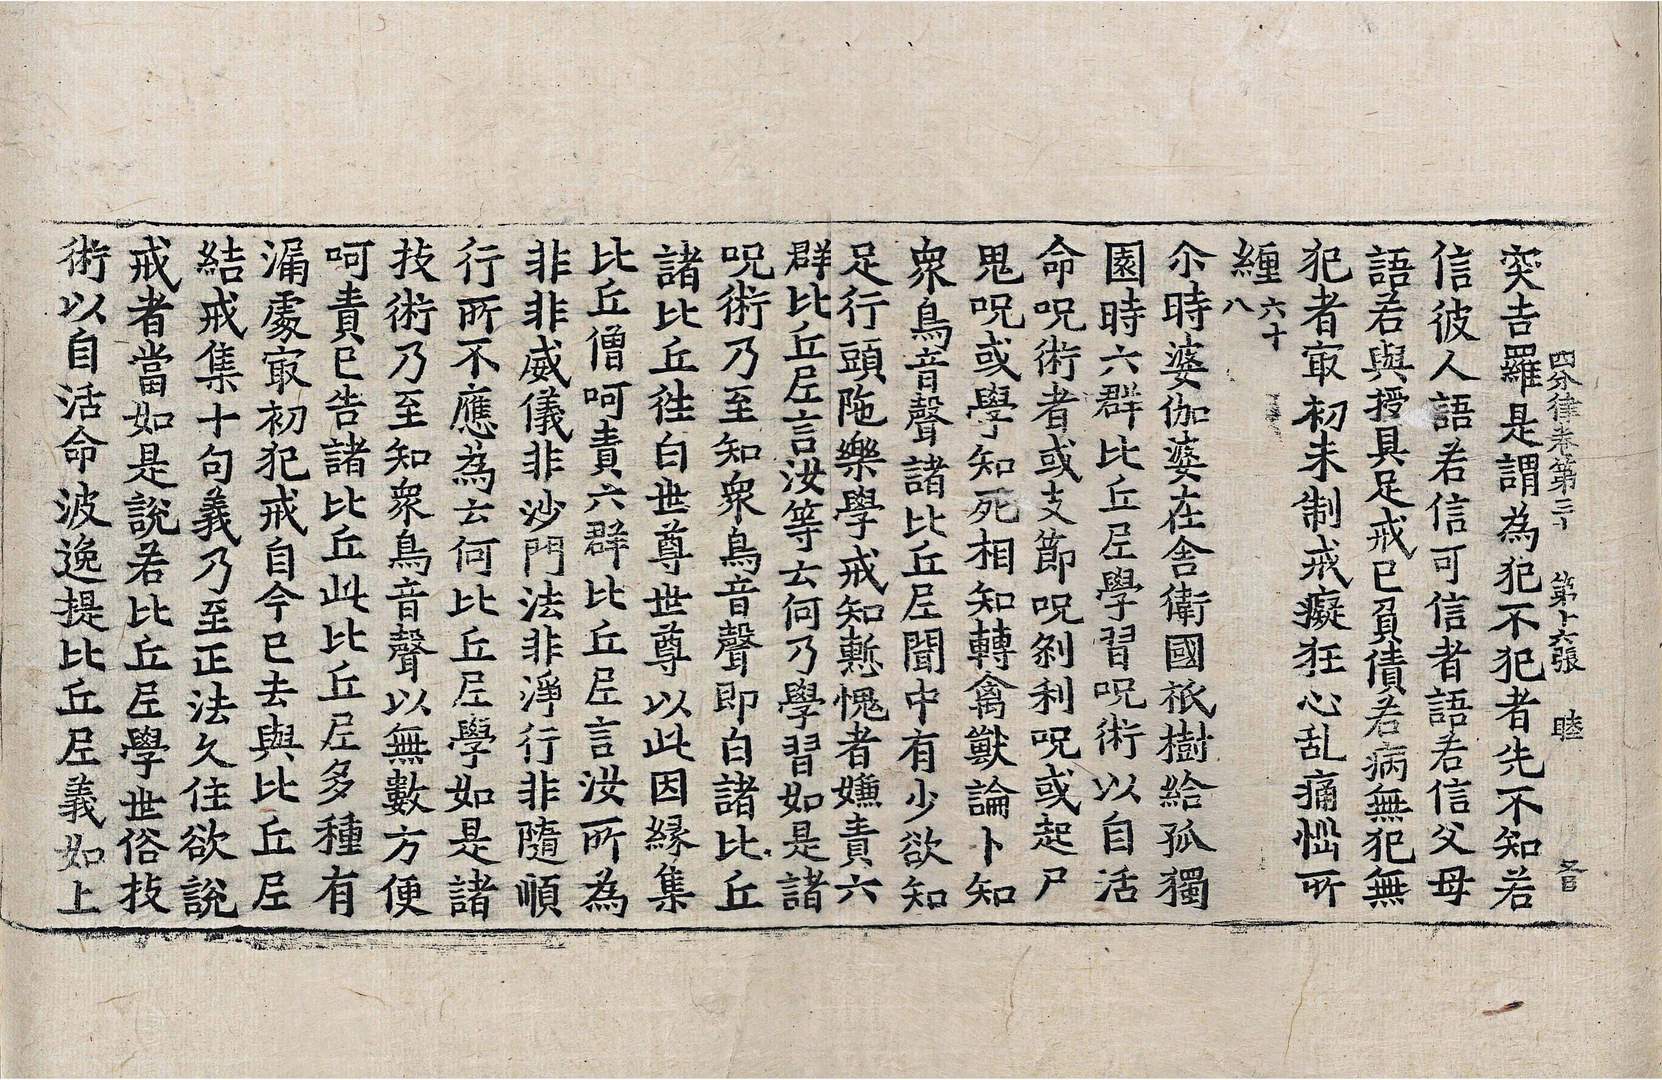 四分律卷第三十 第十六張 睦
突吉羅是謂為犯不犯者先不知若
信彼人語若信可信者語若信父母
語若與授具足戒已負債若病無犯無
犯者㝡初未制戒癡狂心乱痛惱所
纏六十八
尒時婆伽婆在舍衛國祇樹給孤獨
園時六群比丘尼學習呪術以自活
命呪術者或支節呪剎利呪或起尸
鬼呪或學知死相知轉禽獸論卜知
衆鳥音聲諸比丘尼聞中有少欲知
足行頭陁樂學戒知慙愧者嫌責六
群比丘尼言汝等云何乃學習如是諸
呪術乃至知衆鳥音聲即白諸比丘
諸比丘往白世尊世尊以此因緣集
比丘僧呵責六群比丘尼言汝所為
非非威儀非沙門法非淨行非隨順
行所不應為云何比丘尼學如是諸
技術乃至知衆鳥音聲以無數方便
呵責已告諸比丘此比丘尼多種有
漏處㝡初犯戒自今已去與比丘尼
結戒集十句義乃至正法久住欲說
戒者當如是說若比丘尼學世俗技
術以自活命波逸提比丘尼義如上